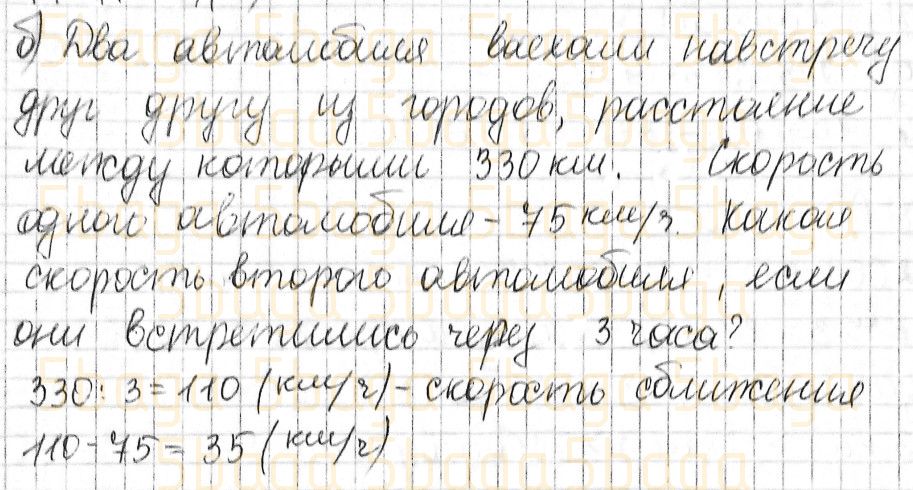 б) Два автомобиля выехали навстречу
друг другу из городов, расстояние
между которыми 330 км. Скорость
одного автомобиля - 75 км/ч. Какая
скорость второго автомобиля, если
они встретились через 3 часа?
330 : 3 = 110 (км/ч) - скорость сближения
110 - 75 = 35 (км/ч)